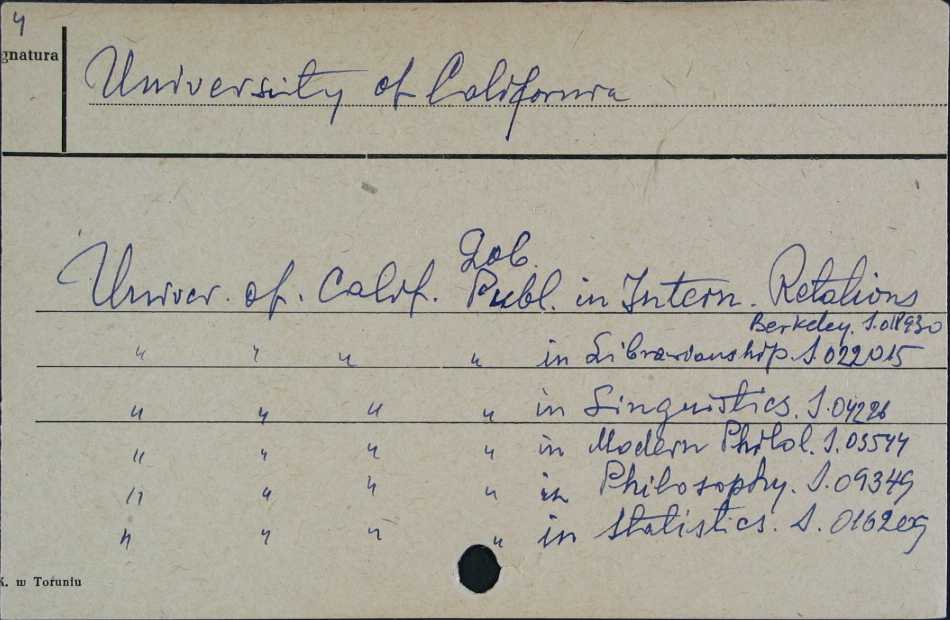 4
gnatura
University of California
Zob.
Univer. of. Calif. Publ. in Intern. Relations
Berkeley. S.018930
" " " " in Librarianship. S 022015
" " " " in Linguistics. S.04226
" " " " in Modern Philol. S.03544
" " " " in Philosophy. S.09349
" " " " in Statistics. S. 016209
K. w Toruniu